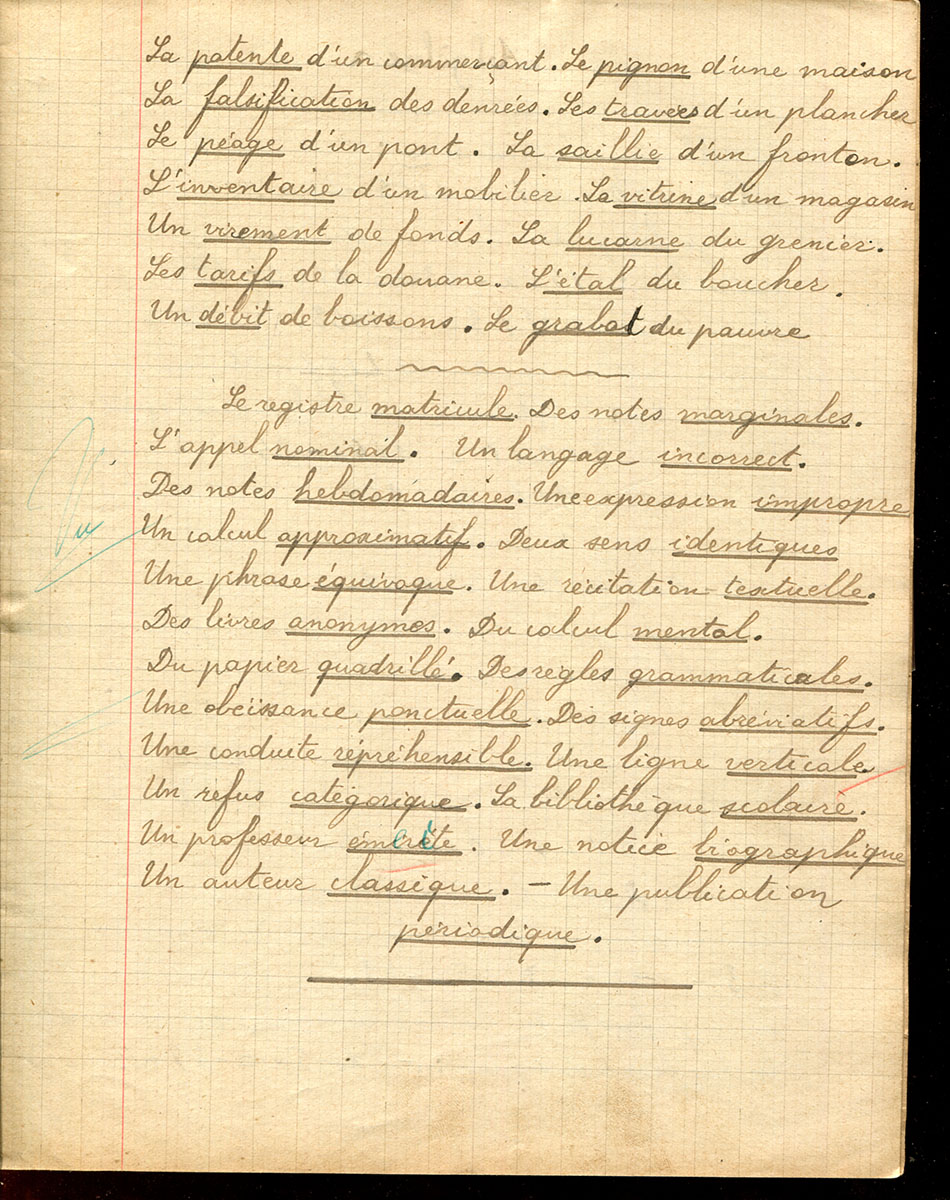 La patente d'un commerçant. Le pignon d'une maison
La falsification des denrées. Les travées d'un plancher
Le péage d'un pont. La saillie d'un fronton.
L'inventaire d'un mobilier. La vitrine d'un magasin
Un virement de fonds. La lucarne du grenier.
Les tarifs de la douane. L'étal du boucher.
Un débit de boissons. Le grabat du pauvre
Le registre matricule. Des notes marginales.
L'appel nominal. Un langage incorrect.
Des notes hebdomadaires. Une expression impropre
Vu
Un calcul approximatif. Deux sens identiques
Une phrase équivoque. Une récitation textuelle.
Des livres anonymes. Du calcul mental.
Du papier quadrillé. Des règles grammaticales.
Une obéissance ponctuelle. Des signes abréviatifs.
Une conduite répréhensible. Une ligne verticale
Un refus catégorique. La bibliothèque scolaire.
Un professeur émérite. Une notice biographique
Un auteur classique. – Une publication
périodique.